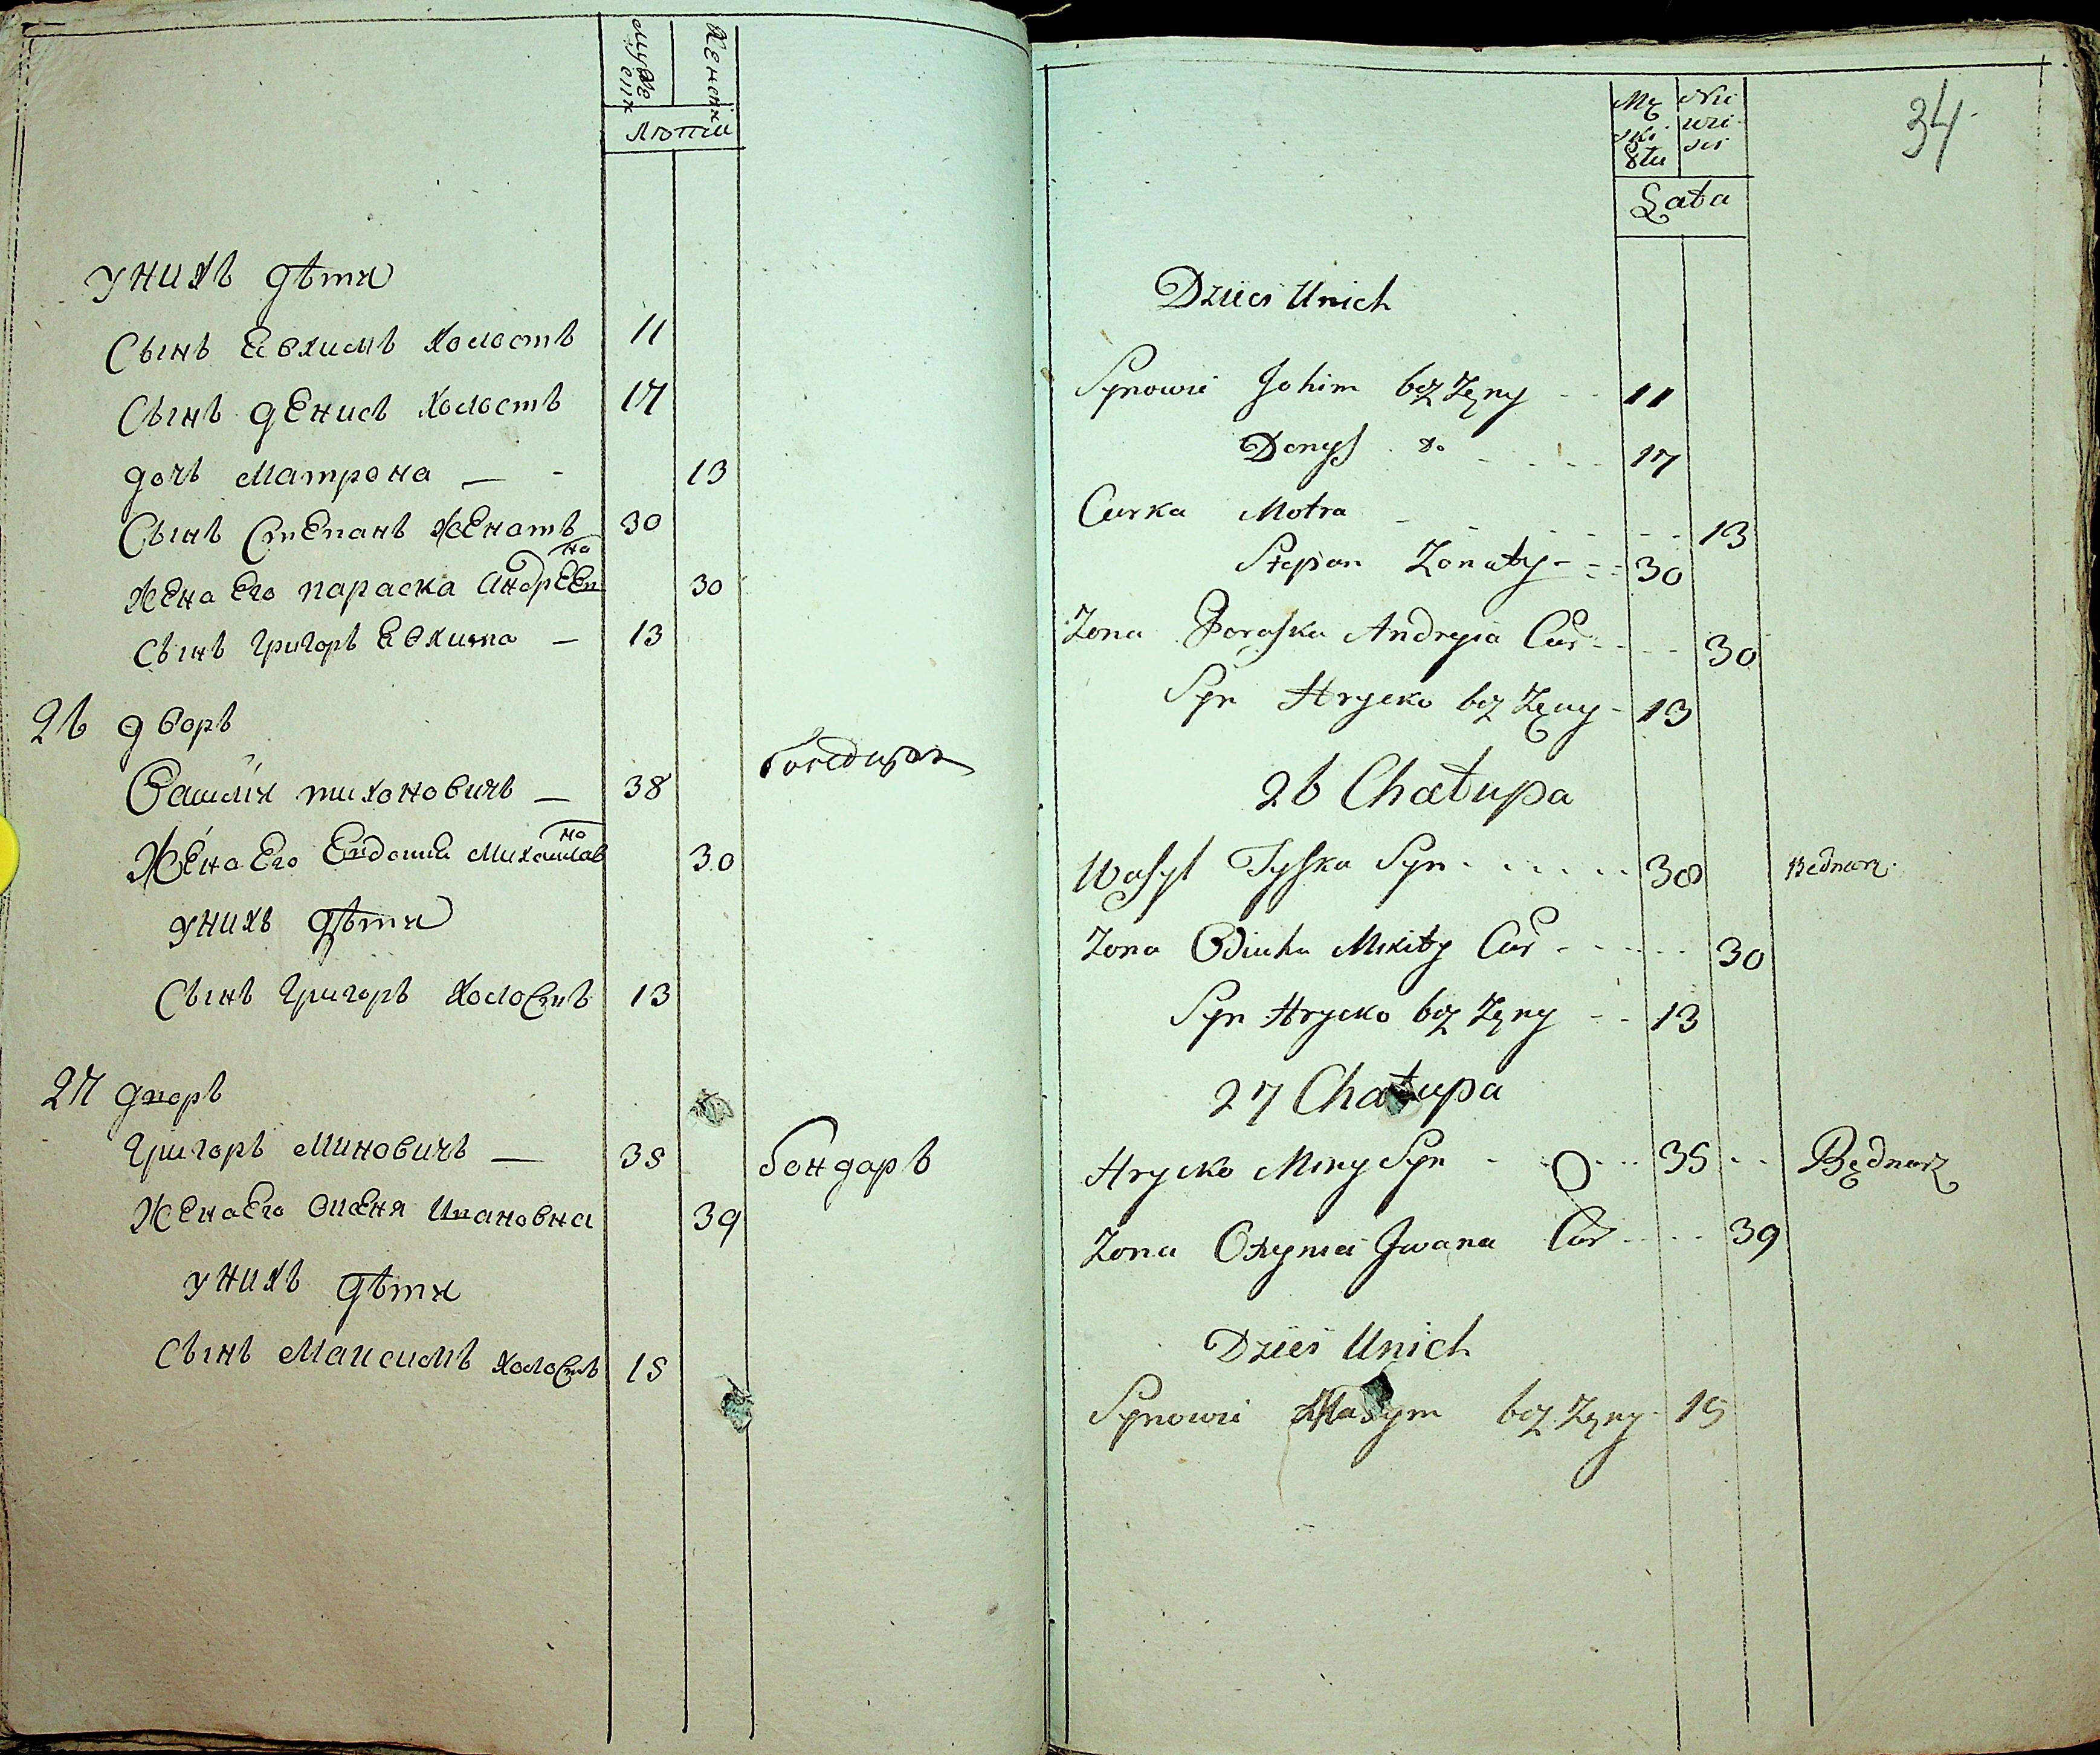 Мужескихъ Женскихъ
Лѣтии
у нихъ дѣти
Сынъ Евхимъ холостъ 11
Сынъ Денисъ холостъ 17
дочь Матрона — - 13
Сынъ Степанъ женатъ 30
Жена его параска Андреевна 30
Сынъ Григорь Евхима — 13
26 дворъ
Василіи тихоновичъ — 38
Жена Его Евдокия Михаилавна 30
у нихъ дѣти
Сынъ Григорь холостъ 13
27 дворъ
Григорь Миновичъ — 35 бондарь
Жена Его Оксеня Ивановна 39
у нихъ дѣти
Сынъ Максимъ холостъ 15
34
Lata
Dzieci Unich
Synowie Johim bez Zęny - - 11
Denys do - - - - 17
Curka Motra - - - - - 13
Stepan Zonaty - - - 30
Zona Paraska Andryia Cur - - - 30
Syn Hrycko bez Zęny - 13
26 Chałupa
Wasyl Tyszka Syn - - - - - 38 Bednarz
Zona Odiuha Mikity Cur - - - - - 30
Syn Hrycko bez Zęny - - 13
27 Chałupa
Hrycko Miny Syn - - - - - 35 - - Będnarz
Zona Oxynia Jwana Cur - - - - 39
Dzieci Unich
Synowie Maxym bez Zęny - 15